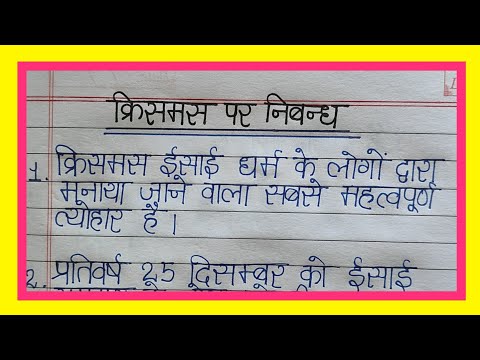 क्रिसमस पर निबन्ध
1. क्रिसमस ईसाई धर्म के लोगों द्वारा
मनाया जाने वाला सबसे महत्वपूर्ण
त्योहार है।
2. प्रतिवर्ष 25 दिसम्बर को ईसाई